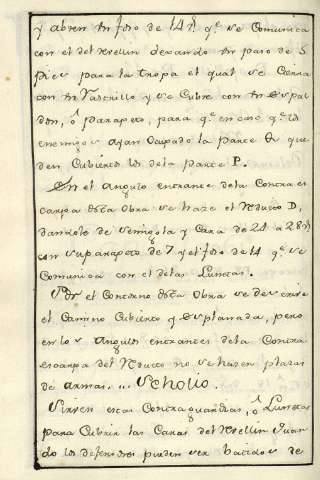 y abren un foso de 14 p.^s q.^e se Comunica
con el del Revellin dexando un paso de 5
pies para la tropa el qual se Cierra
con un Rastrillo y se Cubre con un Espal
don, ó parapeto, para q.^e en caso q.^e los
enemigos ayan Ocupado la parte Q que
den Cubiertos los de la parte P.
En el angulo entrante de la Contraes
carpa desta Obra se haze el Reducto D,
dandole de Semigola y Cara de 24 a 28 p.^s
con su parapeto de 7 y el foso de 14 q.^e se
Comunica con el de las Lunetas.
Por el Contorno desta Obra se deve
el Camino Cubierto y Esplanada, pero
en los Angulos entrantes de la Contra
escarpa del Reducto no se hasen plazas
de armas. Scholio.
Sirven estas Contraguardias, ó Lunetas
para Cubrir las Caras del Revellin Quan
do los defensores pueden ser batidos de